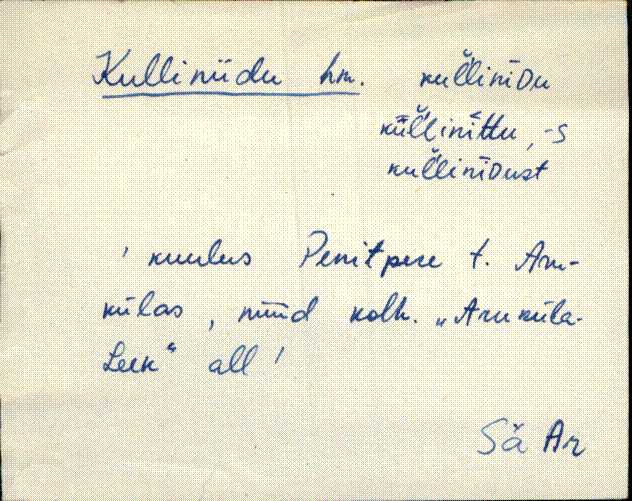 Kulliniidu hm. kuĺ̆linīDu
kūĺ̆linīttu, -s
kuĺ̆linīDust
' kuulus Penitpere t. Aru-
külas, nüüd kolh. „Aruküla-
Leek" all '
Sä Ar